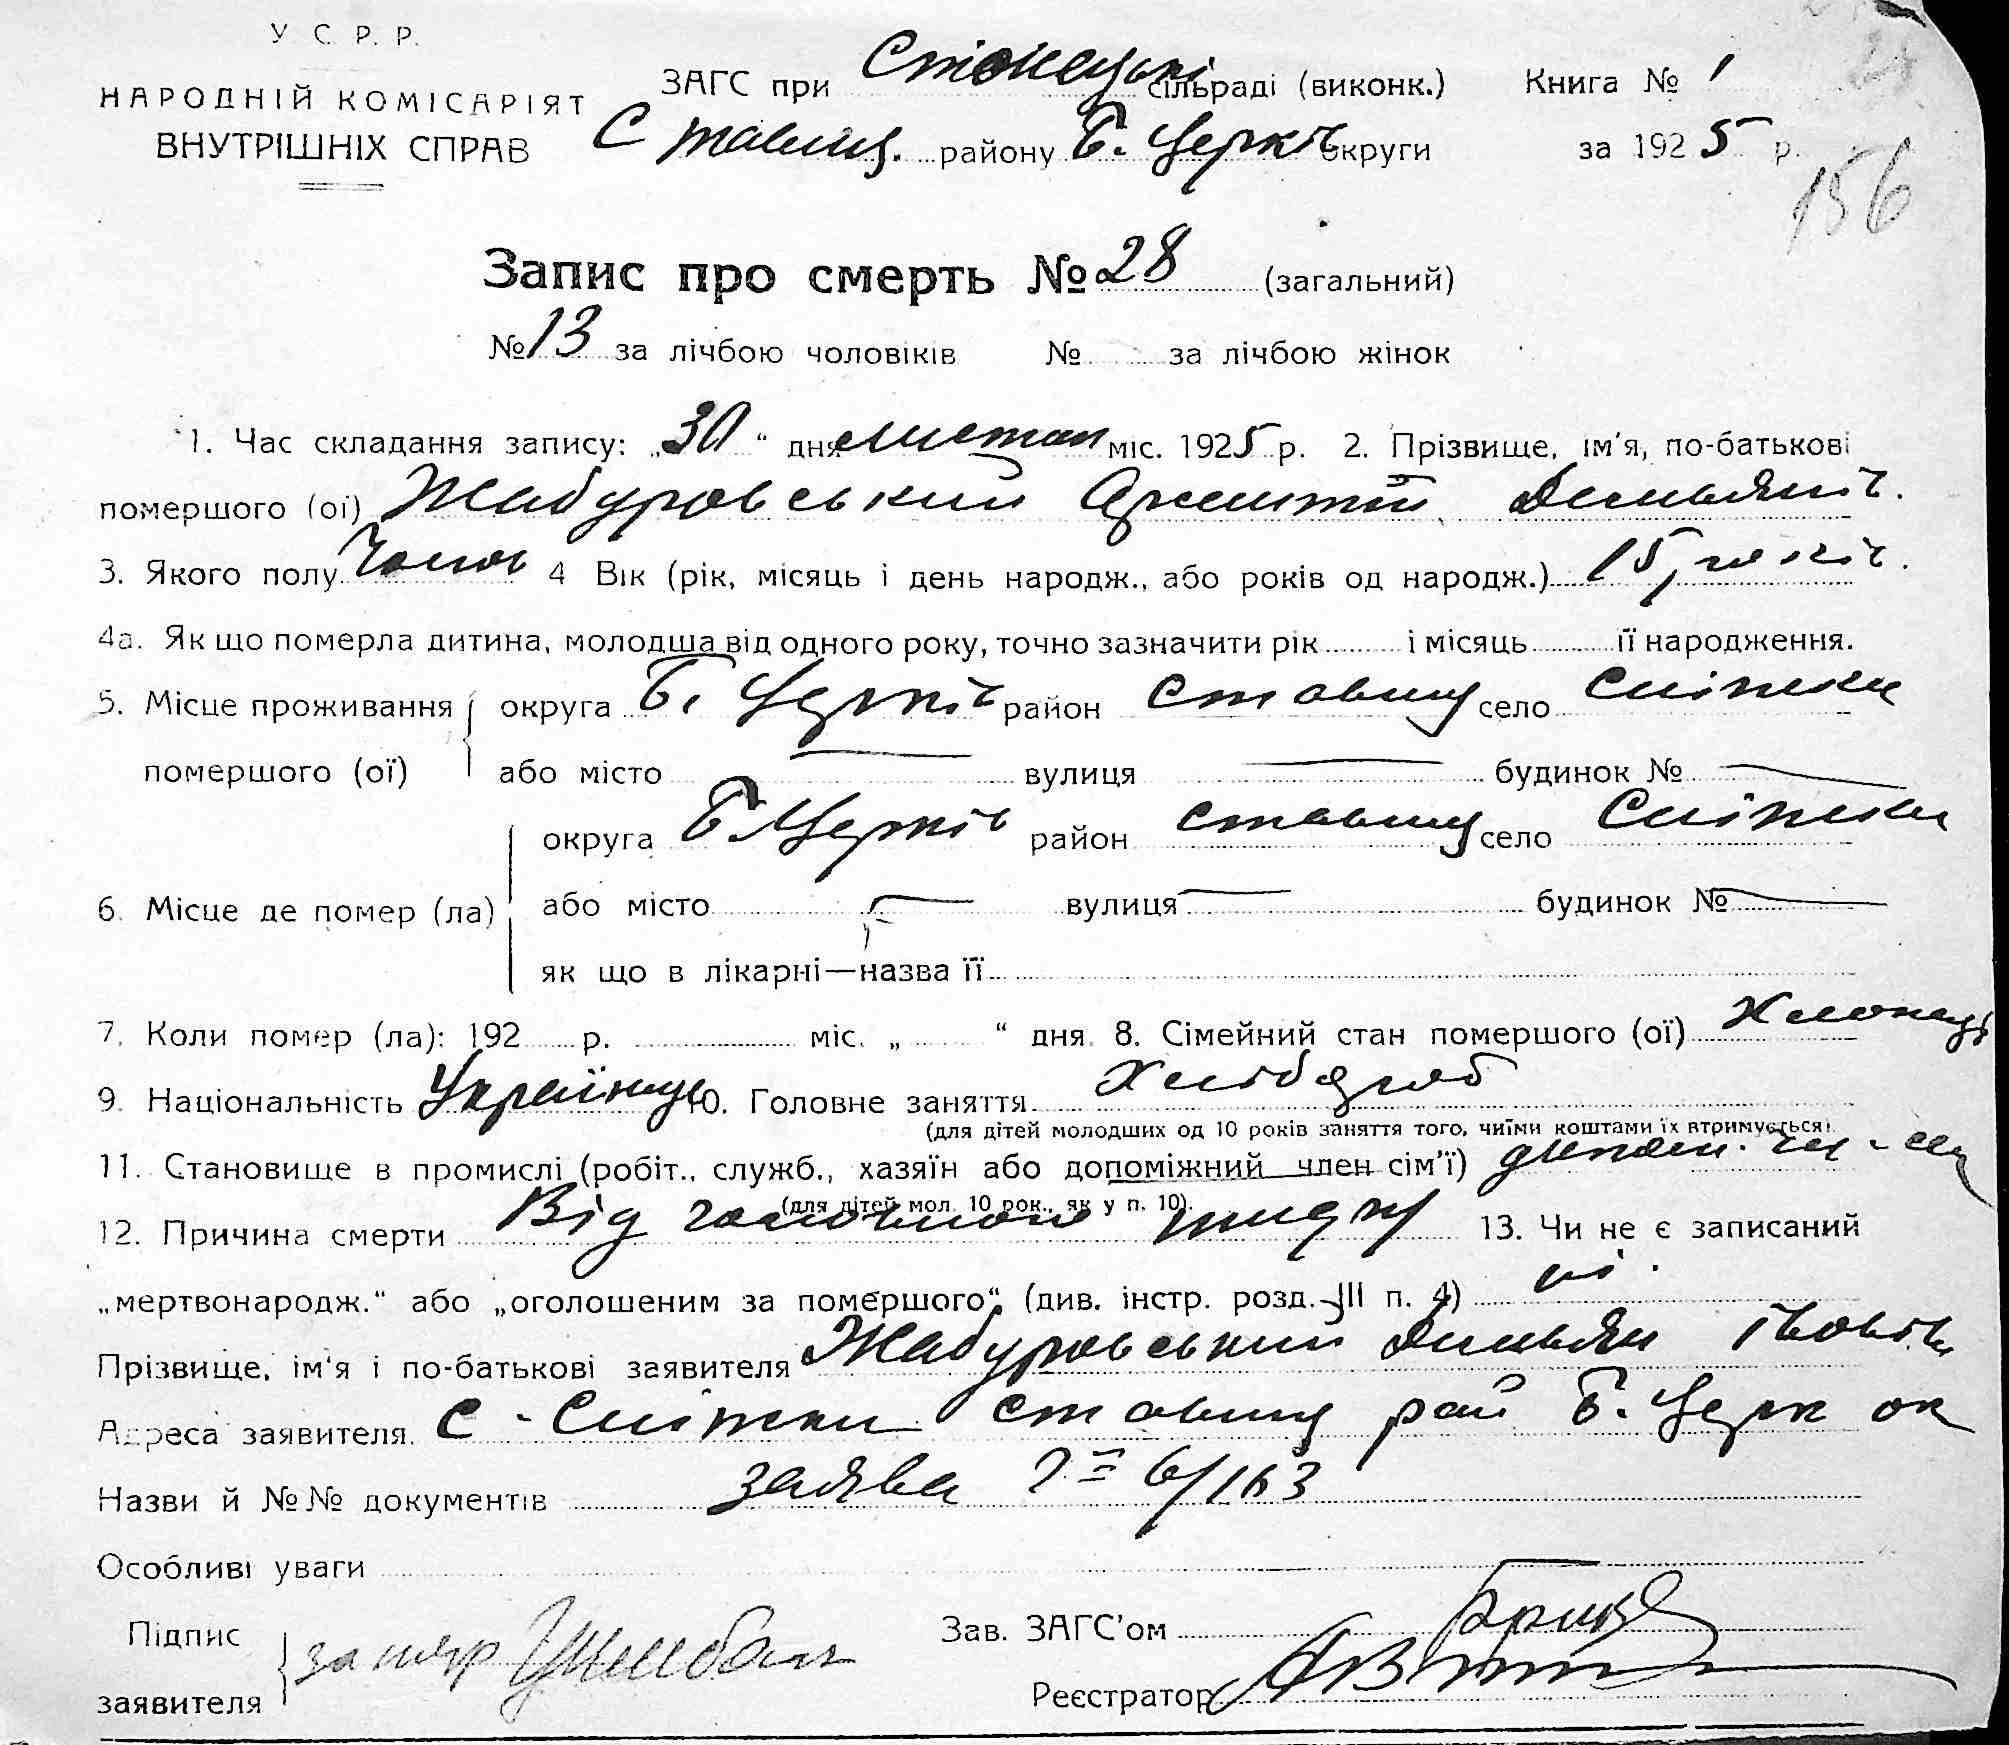 У С. Р. Р.
НАРОДНІЙ КОМІСАРІЯТ
ВНУТРІШНІХ СПРАВ
ЗАГС при сільраді (виконк.) Книга № 1
Ставищ. району Б. Церків округи за 1925 р.
156
Запис про смерть № 28 (загальний)
№ 13 за лічбою чоловіків № за лічбою жінок
1. Час складання запису: „30“ дня листоп міс. 1925 р. 2. Прізвище, ім'я, по-батькові
помершого (ої) Жабуровський Демьянів.
3. Якого полу Чолов 4 Вік (рік, місяць і день народж., або років од народж.) 15, років.
4а. Як що померла дитина, молодша від одного року, точно зазначити рік і місяць її народження.
5. Місце проживання помершого (ої)
округа Б. Церків район Ставищ село Сніжки
або місто — вулиця — будинок № —
6. Місце де помер (ла)
округа Б Церків район Ставищ село Сніжки
або місто — вулиця — будинок № —
як що в лікарні—назва її
7. Коли помер (ла): 192 р. міс. „ “ дня. 8. Сімейний стан помершого (ої) Хлопець
9. Національність Українець 10. Головне заняття Хлібороб
(для дітей молодших од 10 років заняття того, чиїми коштами їх втримується).
11. Становище в промислі (робіт., служб., хазяїн або допоміжний член сім'ї)
(для дітей мол. 10 рок., як у п. 10).
12. Причина смерти Від 13. Чи не є записаний
„мертвонародж.“ або „оголошеним за помершого“ (див. інстр. розд. III п. 4) ні.
Прізвище, ім'я і по-батькові заявителя Жабуровський Демьян
Адреса заявителя. С - Сніжки Ставищ рай Б. Церк ок
Назви й №№ документів заява 6/163
Особливі уваги
Підпис заявителя за непр
Зав. ЗАГС'ом
Реєстратор